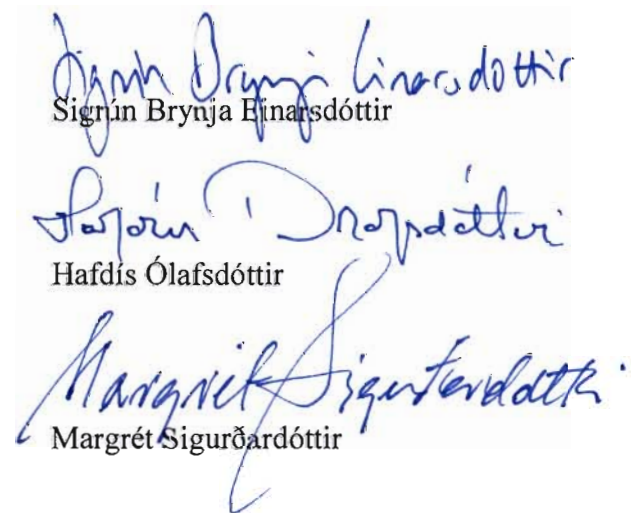 Sigrún Brynja Einarsdóttir
Sigrún Brynja Einarsdóttir
Hafdís Ólafsdóttir
Margrét Sigurðardóttir
Margrét Sigurðardóttir